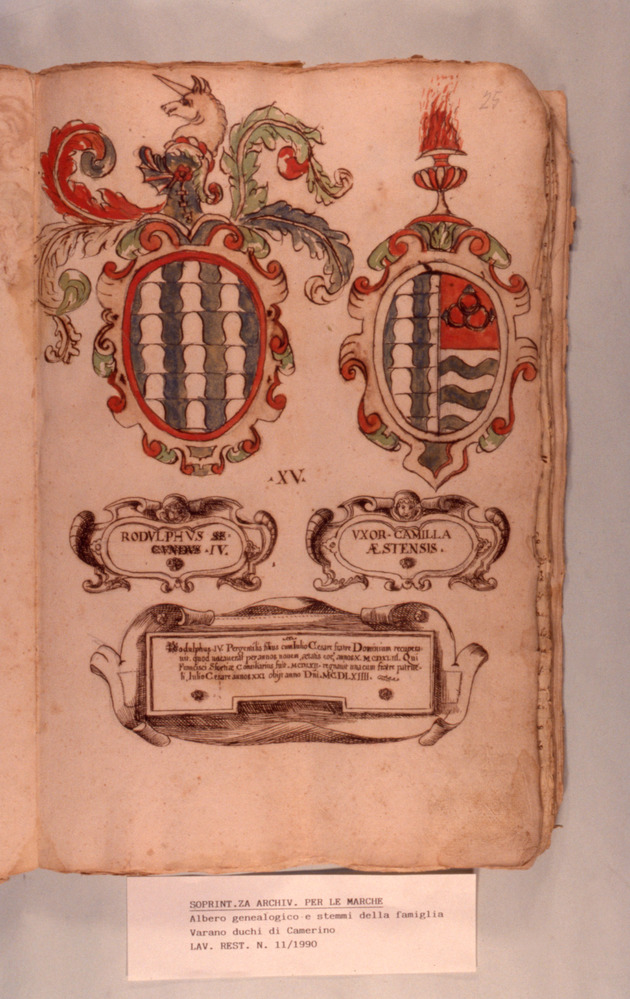 25
·XV·
RODVLPHVS SE-
CVNDVS ·IV·
VXOR·CAMILLA
ÆSTENSIS·
Rodulphus IV. Pergentilis filius cum Iulio Cesare fratre Dominium recupera-
uit, quod uacauerat per annos nouem, ætatis annor. X. Qui
Francisci Sfortiæ Consiliarius fuit regnauit una cum fratre patrue-
li, Iulio Cesare annos XXI obijt anno Dñi. MCDLXIIII.
SOPRINT.ZA ARCHIV. PER LE MARCHE
Albero genealogico e stemmi della famiglia
Varano duchi di Camerino
LAV. REST. N. 11/1990